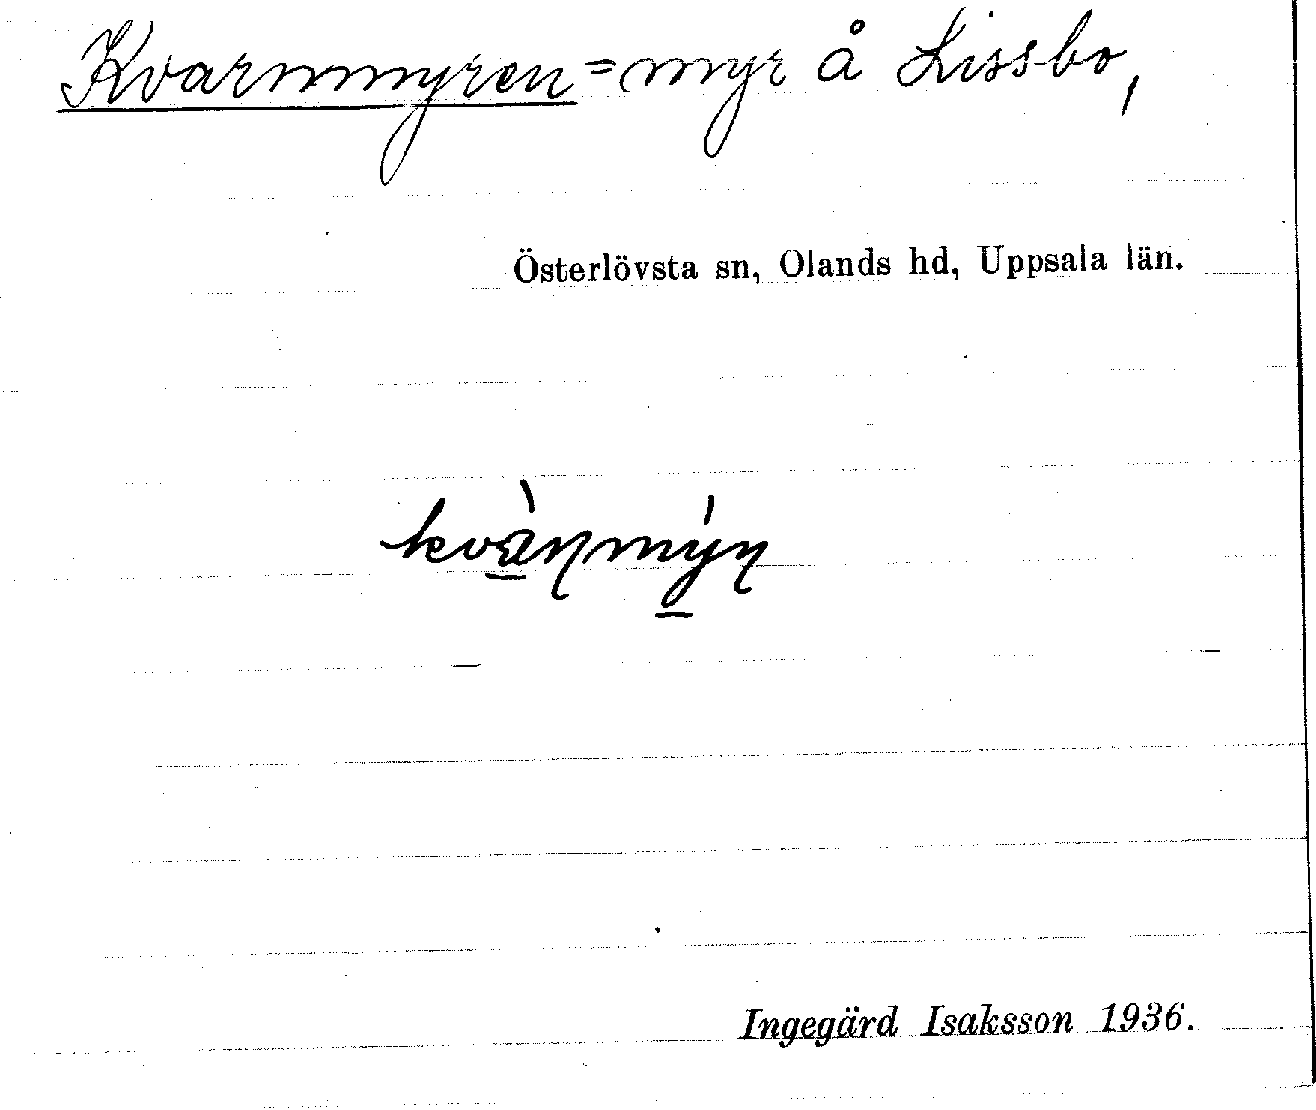 Kvarnmyren = myr å Lissbo,
Österlövsta sn, Olands hd, Uppsala län.
kvàɳmýɳ
Ingegärd Isaksson 1936.